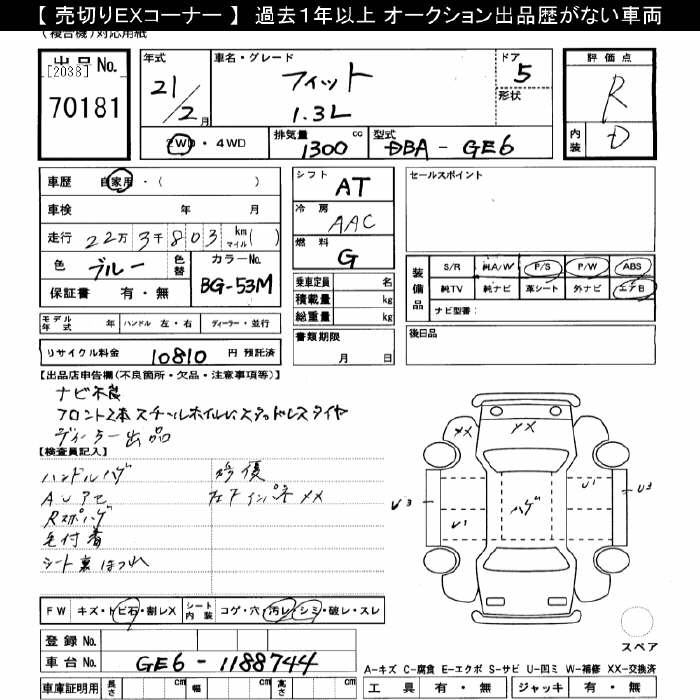 【 売切りEXコーナー 】 過去1年以上 オークション出品歴がない車両
(複合機)対応用紙
出品No.
[2038]
70181
年式
21/2月
車名・グレード
フィット
1.3L
ドア
5
形状
評価点
R
内装
D
2WD・4WD
排気量
1300cc
型式
DBA-GE6
車歴 自家用・( )
車検 年 月
走行 22万3千803 km マイル( )
色 ブルー 色替
カラーNo.
BG-53M
保証書 有・無
シフト AT
冷房 AAC
燃料 G
乗車定員 名
積載量 kg
総重量 kg
セールスポイント
装備品
S/R 純A/W P/S P/W ABS
純TV 純ナビ 革シート 外ナビ エアB
ナビ型番:
モデル年式 年 ハンドル 左・右 ディーラー・並行
リサイクル料金 10810 円 預託済
書類期限
月 日
後日品
【出品店申告欄(不良箇所・欠品・注意事項等)】
ナビ不良
フロント2本スチールホイルスタッドレスタイヤ
ディーラー出品
【検査員記入】
ハンドルハゲ
Rスポハゲ
毛付着
シート裏ほつれ
XX
XX
ハゲ
U3
U1
U1
U3
FW キズ・トビ石・割レX
シート内装 コゲ・穴・汚レ・シミ・破レ・スレ
登録No.
車台No. GE6-1188744
車庫証明用 長さ cm 幅 cm 高さ cm
スペア
A-キズ C-腐食 E-エクボ S-サビ U-凹ミ W-補修 XX-交換済
工具 有・無 ジャッキ 有・無